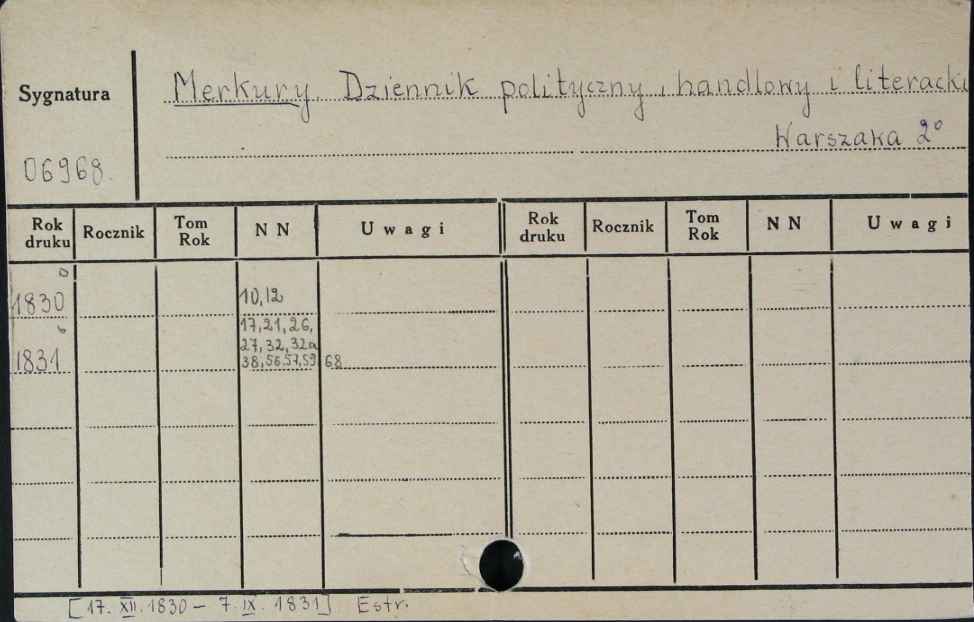 Sygnatura
06968.
Merkury. Dziennik polityczny, handlowy i literacki
Warszaka 2°
Rok druku Rocznik Tom Rok NN Uwagi Rok druku Rocznik Tom Rok NN Uwagi
1830 10,12
17,21,26,
27,32,32a
1831 38,56,57,59,68
[17. XII. 1830 – 7. IX. 1831] Estr.